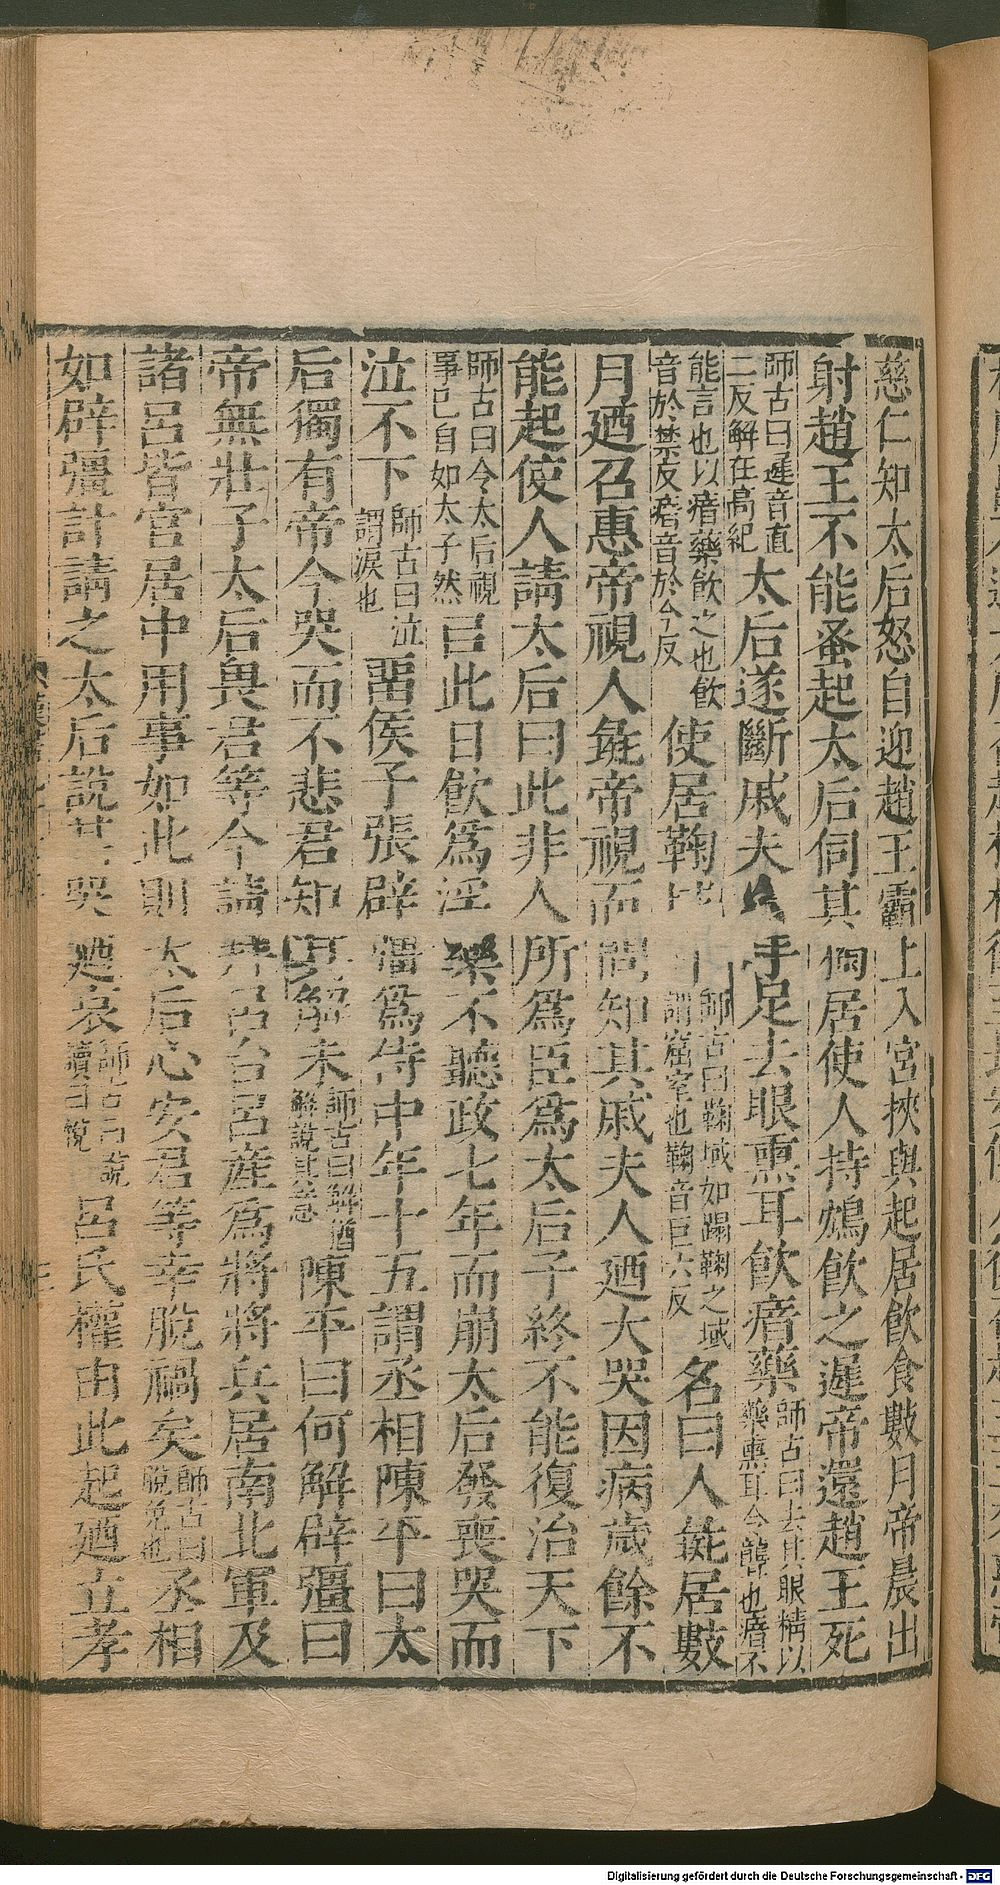 慈仁知太后怒自迎趙王霸上入宮挾與起居飲食數月帝晨出
射趙王不能蚤起太后伺其獨居使人持鴆飲之遲帝還趙王死
師古曰遲音直二反解在高紀太后遂斷戚夫人手足去眼熏耳飲瘖藥師古曰去其眼精以藥熏耳令聾也瘖不
能言也以瘖藥飲之也飲音於禁反瘖音於今反使居鞠域中師古曰鞠域如蹋鞠之域謂窟室也鞠音巨六反名曰人彘居數
月廼召惠帝視人彘帝視而問知其戚夫人廼大哭因病歲餘不
能起使人請太后曰此非人所爲臣爲太后子終不能復治天下
師古曰令太后視事已自如太子然㠯此日飲爲淫樂不聽政七年而崩太后發喪哭而
泣不下師古曰泣謂淚也畱侯子張辟彊爲侍中年十五謂丞相陳平曰太
后獨有帝今哭而不悲君知其解未師古曰解猶解說其意陳平曰何解辟彊曰
帝無壯子太后畏君等今請拜呂台呂產爲將將兵居南北軍及
諸呂皆官居中用事如此則太后心安君等幸脫禍矣師古曰脫免也丞相
如辟彊計請之太后說其哭廼哀師古曰說讀曰悅呂氏權由此起廼立孝
Digitalisierung gefördert durch die Deutsche Forschungsgemeinschaft - DFG